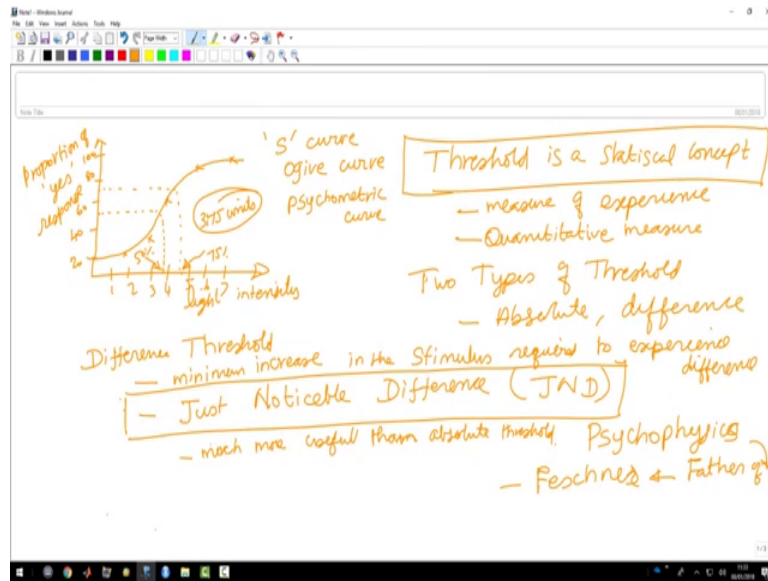 Note1 - Windows Journal
File Edit View Insert Actions Tools Help
Page Width
B I
Note Title
08/01/2018
Proportion of
'yes'
response
100
80
60
40
20
1 2 3 4 5 6 7
50%
75%
light intensity
375 units
'S' curve
ogive curve
psychometric
curve
Threshold is a statiscal concept
- measure of experience
- Quanutitative measure
Two Types of Threshold
- Absolute, difference
Difference Threshold
- minimum increase in the stimulus required to experience
difference
- Just Noticeable Difference (JND)
- much more useful tham absolute threshold.
Psychophysics
- Feschner Father of
1/3
11:33
08/01/2018